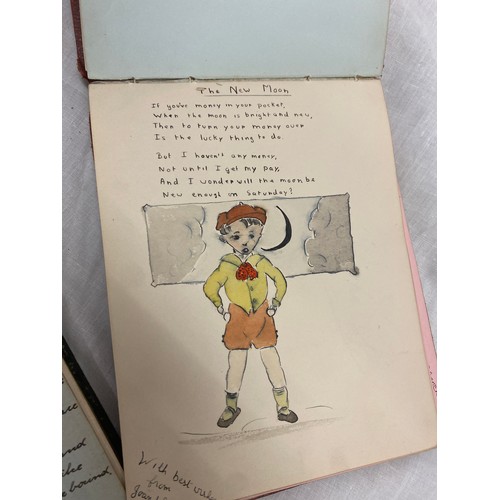 The New Moon
If you've money in your pocket,
When the moon is bright and new,
Then to turn your money over
Is the lucky thing to do.
But I haven't any money,
Not until I get my pay,
And I wonder will the moon be
New enough on Saturday?
With best
from
and
the
bound